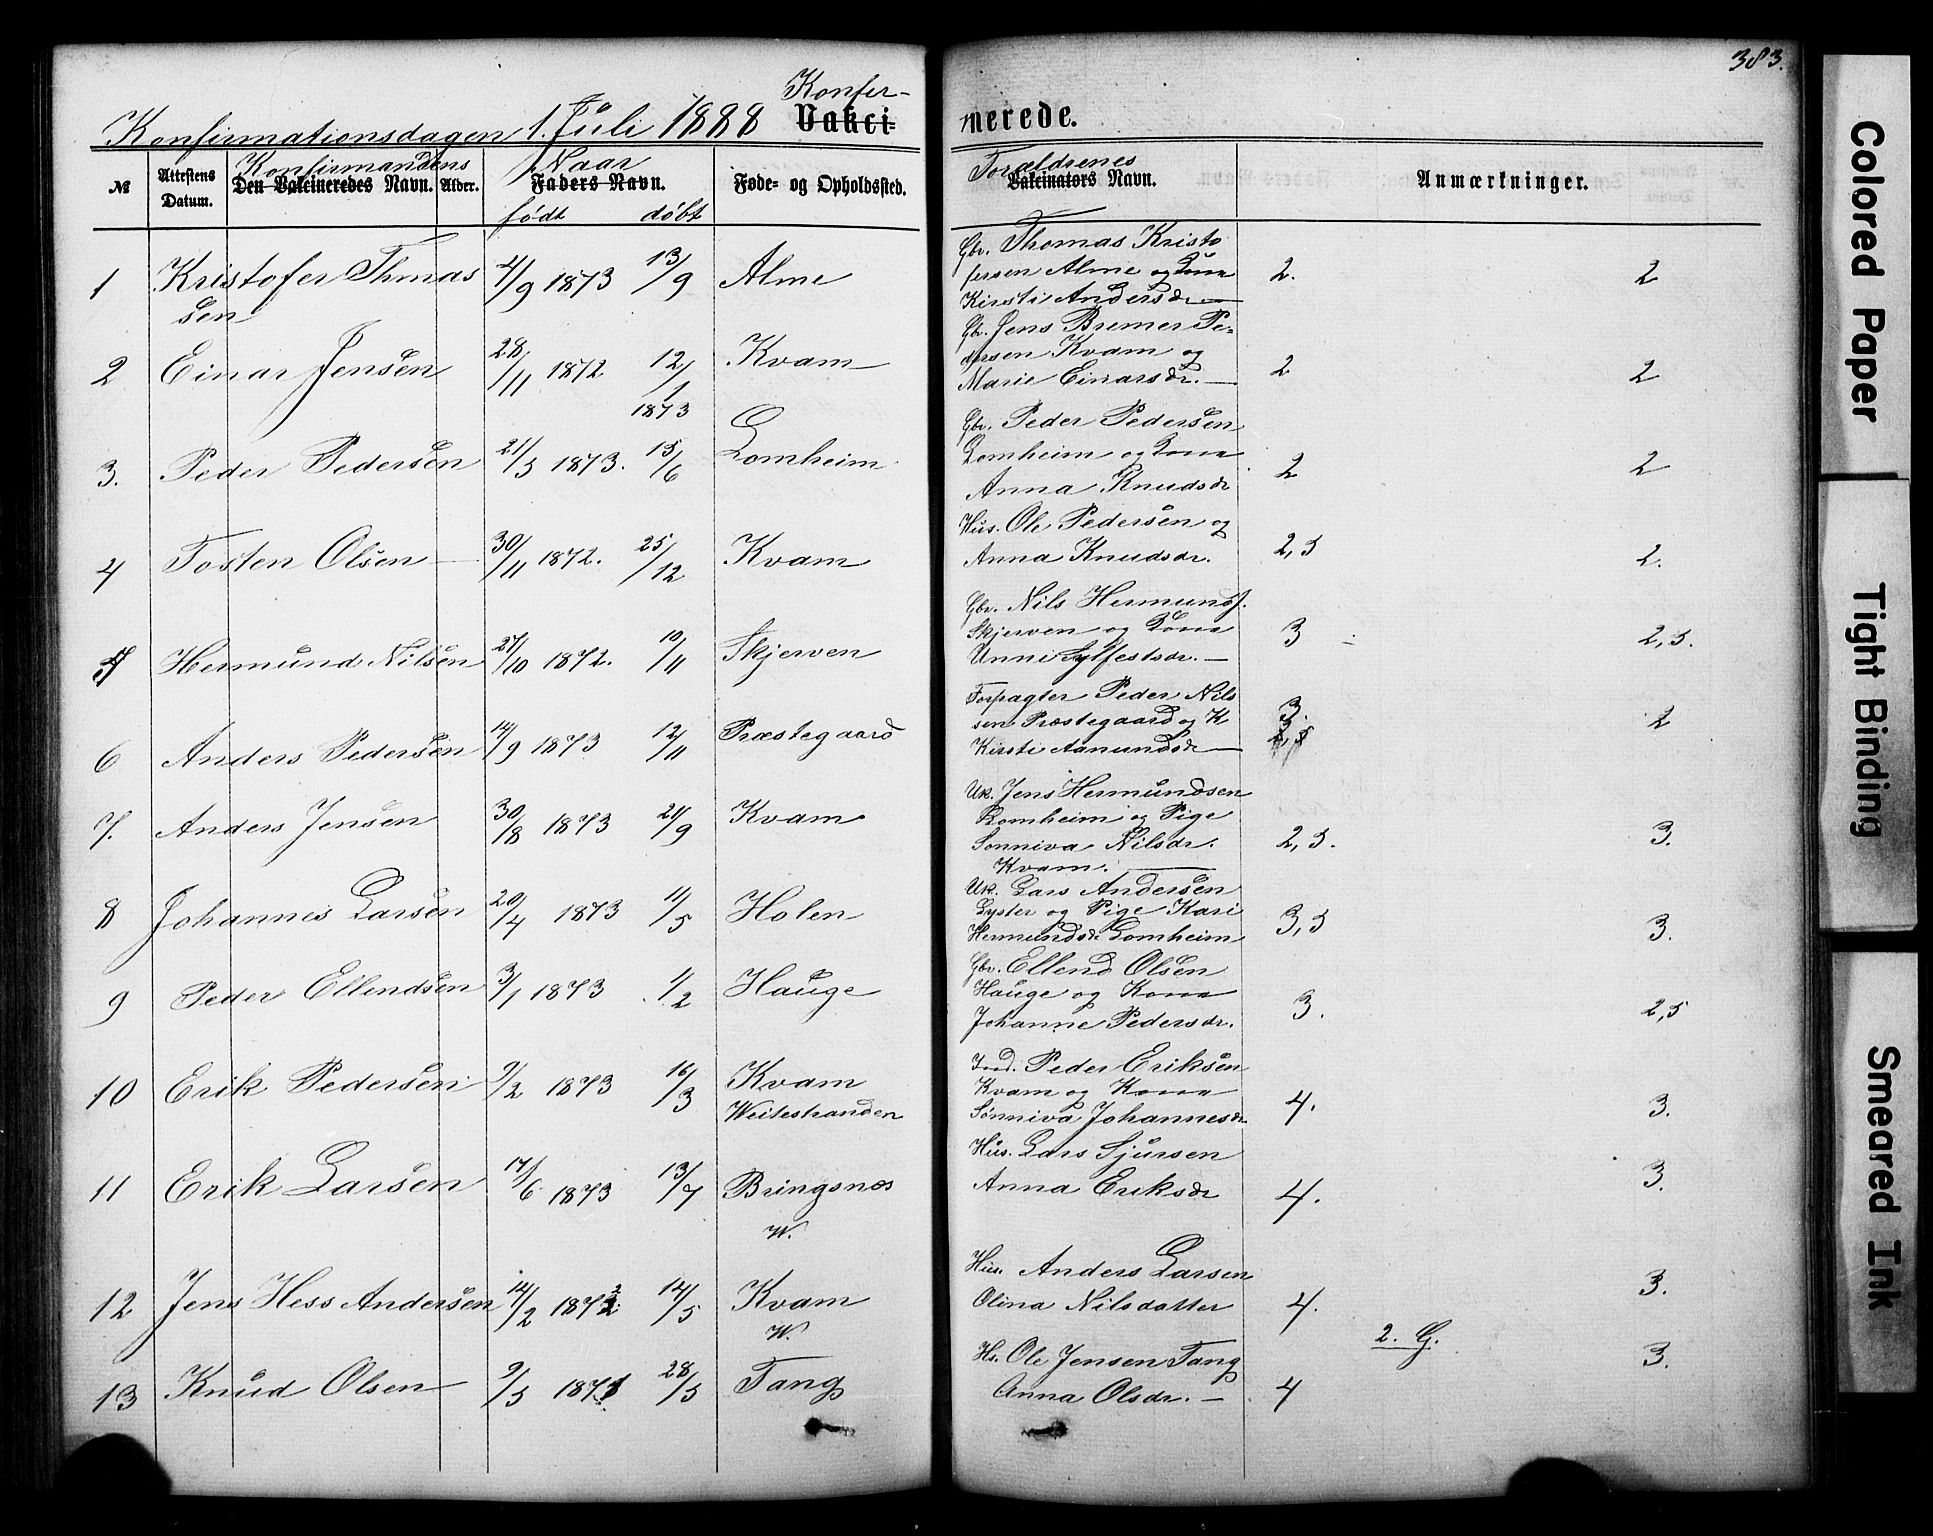 383.
Konfirmationsdagen 1. Juli 1888
Konfer-
Vakci- merede.
№ Attestens Datum. Konfirmandens Den Vakcineredes Navn. Alder. Naar Faders Navn. født døbt Føde- og Opholdssted. Forældrenes Vakcinators Navn. Anmærkninger.
1 Kristofer Thmas 4/9 1873 13/9 Alme
sen
Gbr. Thomas Kristo
fersen Alme og Kona 2. 2
Kirsti Andersdr
2 Einar Jensen 28/11 1872 12/1 1873 Kvam
Gbr. Jens Bremer Pe-
dersen Kvam og 2 2
Marie Einarsdr.
3. Peder Pedersen 21/5 1873. 15/6 Lomheim
Gbr. Peder Pedersen
Lomheim og Kona 2 2
Anna Knudsdr
4 Tosten Olsen 30/11 1872. 25/12 Kvam
Hus. Ole Pedersen og
Anna Knudsdr. 2,5 2.
5 Hermund Nilsen 27/10 1872. 10/11 Skjerven
Gbr. Nils Hermunds.
Skjerven og Kona 3 2,5.
Unni Sylfestsdr.
6 Anders Pedersen 14/9 1873 12/11 Præstegaard
Forpagter Peder Nils
sen Præstegaard og K 3. 2
Kirsti Aamundsdr
7. Anders Jensen 30/8 1873 21/9 Kvam
Uk. Jens Hermundsen
Lomheim og Pige
Sonniva Nilsdr. 2,5. 3.
Kvam.
8 Johannes Larsen 20/4 1873 11/5 Holen
Uk. Lars Andersen
Lyster og Pige Kari 3,5 3.
Hermundsdr Lomheim
9 Peder Ellendsen 3/1 1873 1/2 Hauge
Gbr. Ellend Olsen
Hauge og Kona 3. 2,5
Johanne Pedersdr.
10 Erik Pedersen 9/2 1873 16/3 Kvam
Weitestranden
Ind. Peder Eriksen
Kvam og Kona 4. 3.
Sønniva Johannesdr
11 Erik Larsen 17/6 1873 13/7 Bringsnæs
W.
Hus. Lars Sjursen
Anna Eriksdr 4. 3.
12 Jens Hess Andersen 14/2 1873 14/5 Kvam
W.
Hus. Anders Larsen
Olina Nilsdatter 4. 3.
2. G.
13 Knud Olsen 9/5 1871 28/5 Tang
Hs. Ole Jensen Tang 3.
Anna Olsdr. 4
Colored Paper
Tight Binding
Smeared Ink